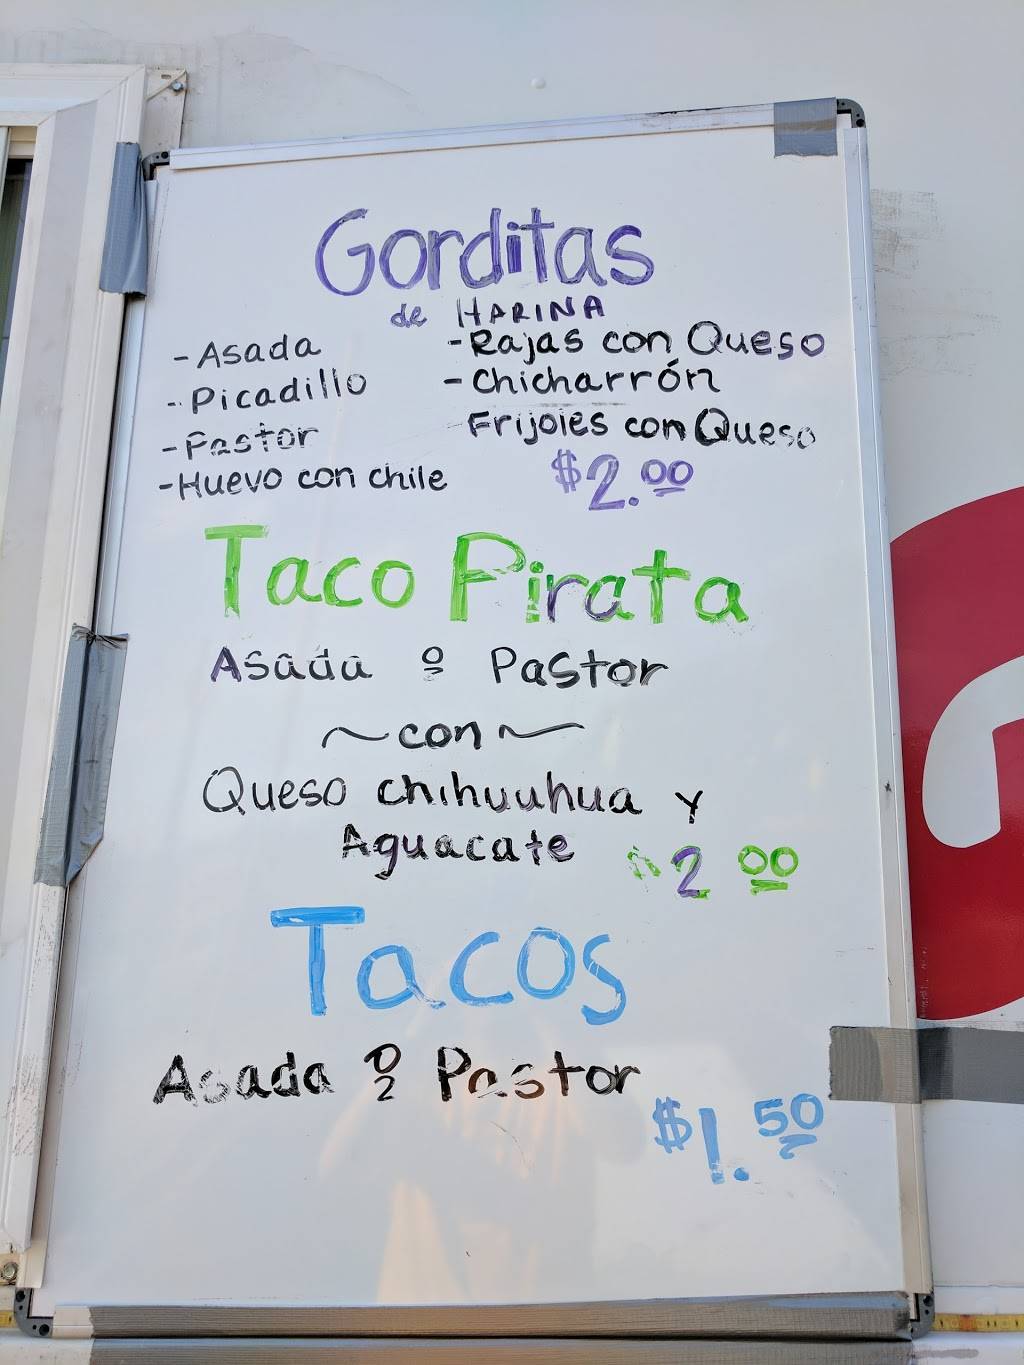 Gorditas
de HARINA
- Asada
- Picadillo
- Pastor
- Huevo con chile
- Rajas con Queso
- Chicharrón
Frijoles con Queso
$2.00
Taco Pirata
Asada o Pastor
~ con ~
Queso chihuuhua y
Aguacate
$2 00
Tacos
Asada o Pastor
$1.50